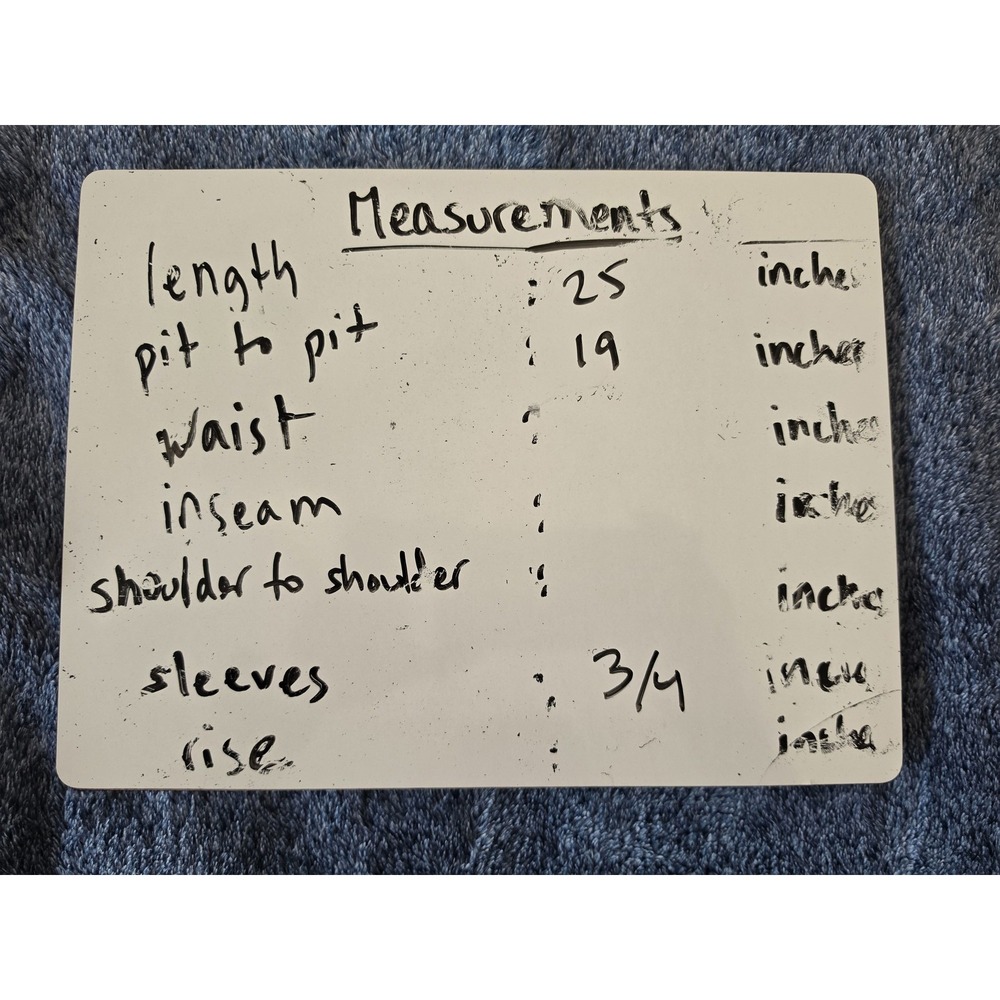 Measurements
length : 25 inches
pit to pit : 19 inches
waist : inches
inseam : inches
shoulder to shoulder : inches
sleeves : 3/4 inches
rise : inches